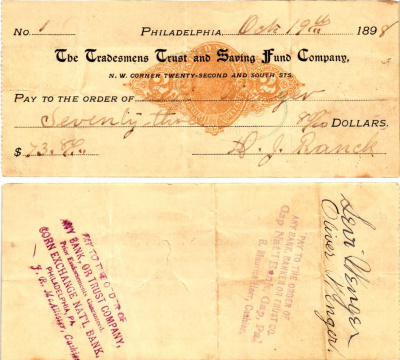 No. 1 Philadelphia, Oct 19th 1898
The Tradesmens Trust and Saving Fund Company,
N. W. CORNER TWENTY-SECOND AND SOUTH STS.
PAY TO THE ORDER OF
Seventy-three DOLLARS.
$ 73.
PAY TO THE ORDER OF
ANY BANK, OR TRUST COMPANY,
Prior Endorsements Guaranteed.
CORN EXCHANGE NAT'L BANK,
PHILADELPHIA, PA.
Cashier
PAY TO THE ORDER OF
ANY BANK, BANKER OR TRUST CO.
Gap Nat'l Bank, Gap, Pa.
Cashier
Levi Wenger
Oliver Wenger